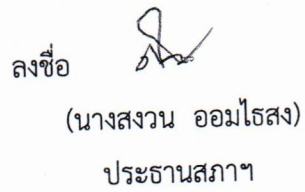 ลงชื่อ
(นางสงวน ออมไธสง)
ประธานสภาฯ